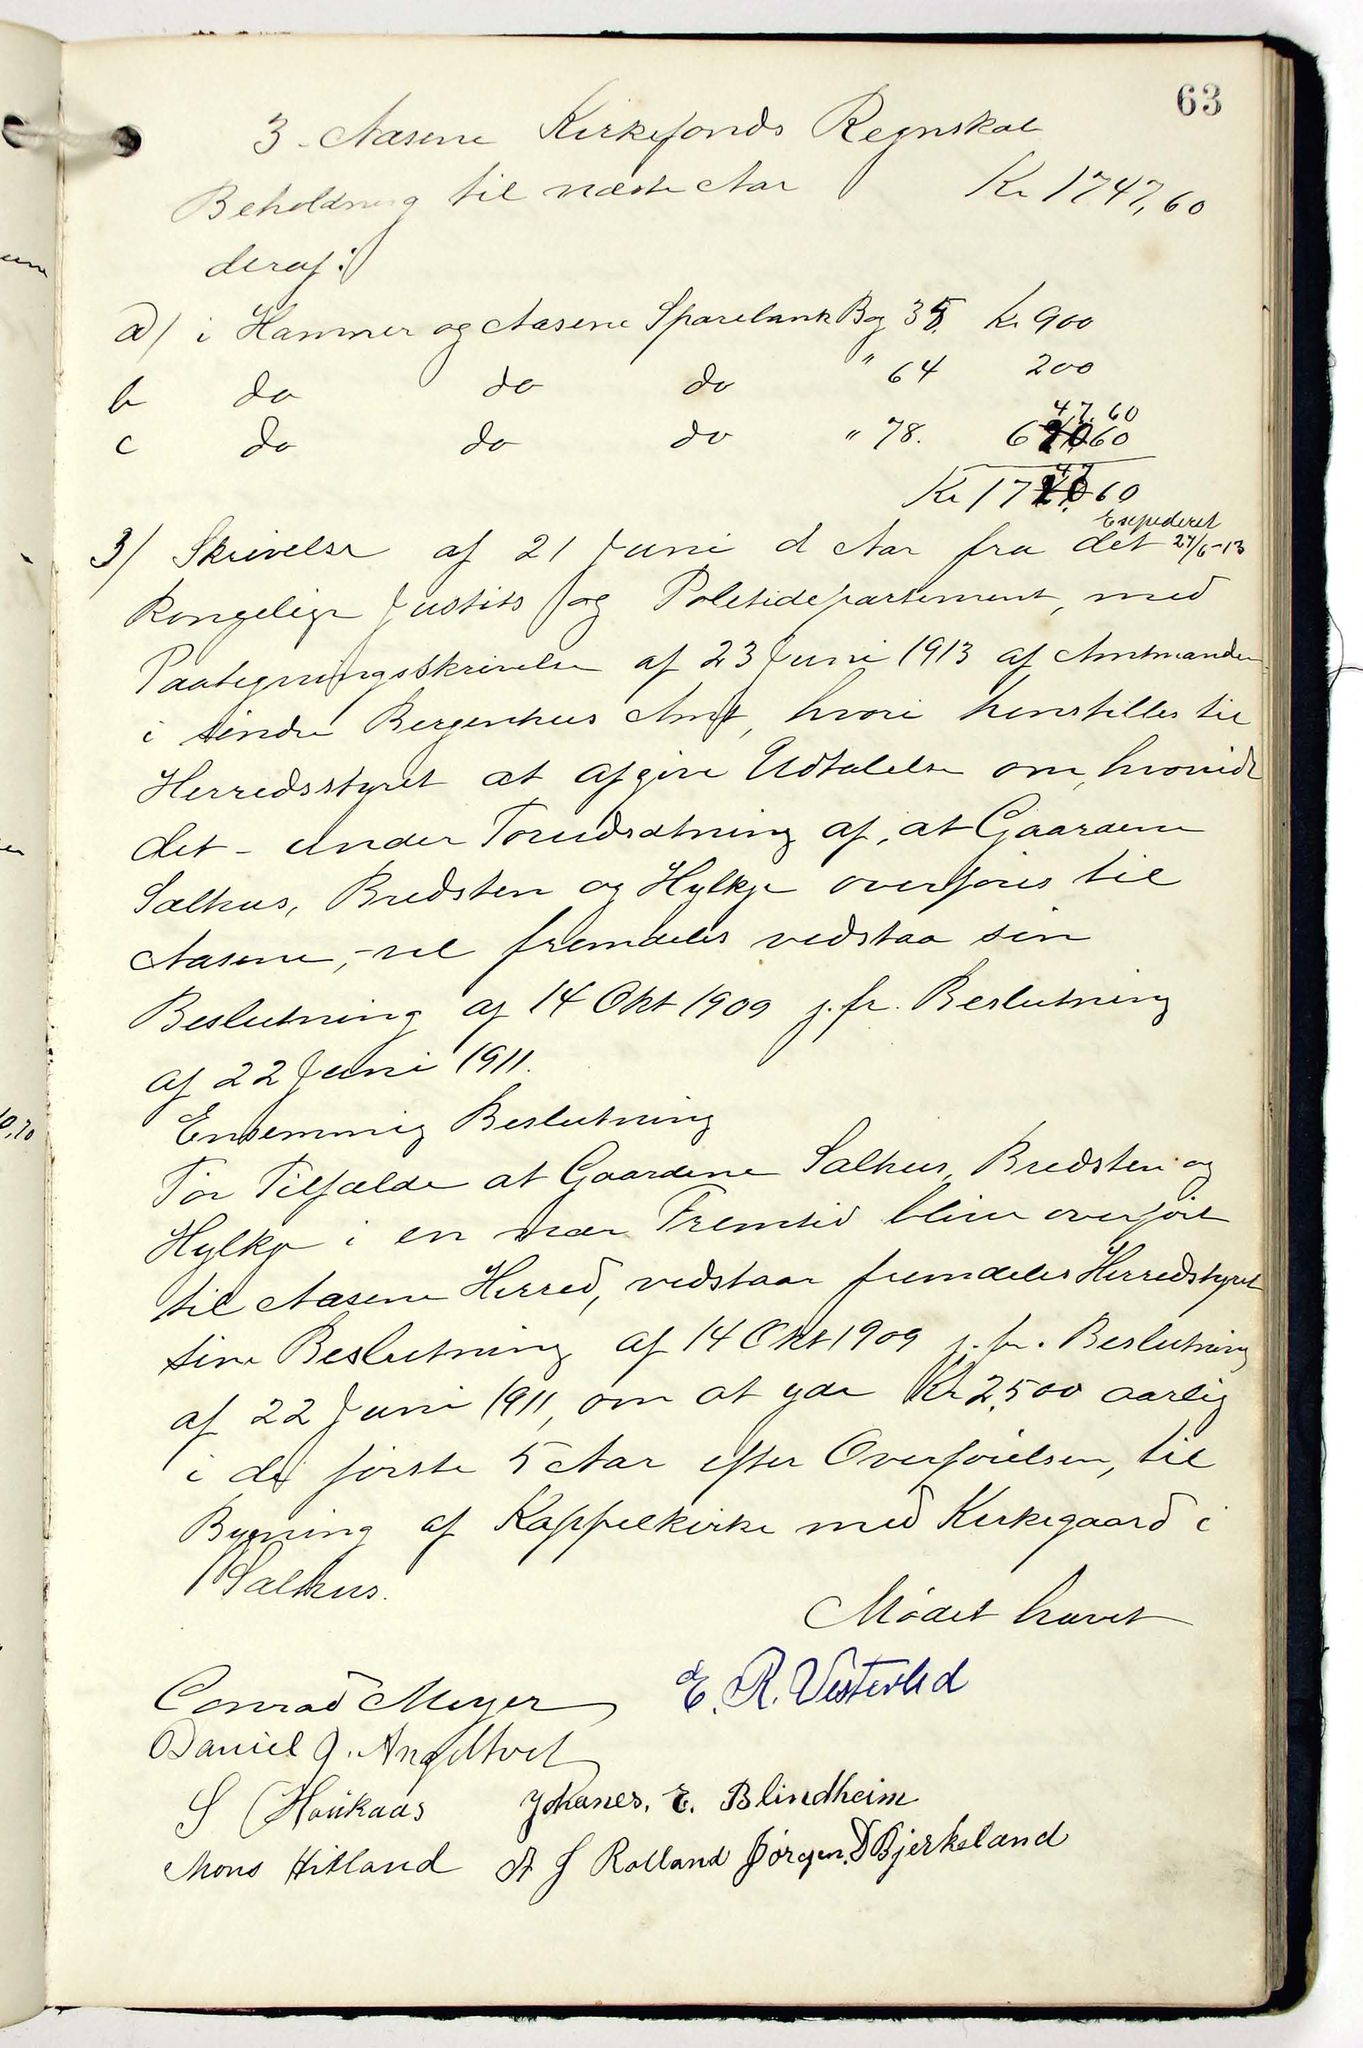 63
3 - Aasene Kirkefonds Regnskab
Beholdning til næste Aar Kr 1747,60
deraf:
a) i Hammer og Aasene Sparebank Bog 35, Kr 900
b do do do " 64 200
47.60
c do do do " 78. 6 60
47
Kr 17 60
Expederet
3) Skrivelse af 21 Juni d Aar fra det 27/6-13
kongelige Justits og Politidepartement, med
Paategningsskrivelse af 23 Juni 1913 af Amtmanden
i søndre Bergenhus Amt, hvori henstilles til
Herredsstyret at afgive Udtalelse om, hvorvidt
det - under Forudsætning af, at Gaardene
Salhus, Bredsten og Hylkje overføres til
Aasene, - vil fremdeles vedstaa sin
Beslutning af 14 Okt 1909 j.fr. Beslutning
af 22 Juni 1911.
Enstemmig Beslutning
For Tilfælde at Gaardene Salhus, Bredsten og
Hylkje i en nær Fremtid bliver overført
til Aasene Herred, vedstaar fremdeles Herredstyret
sine Beslutning af 14 Okt 1909 j.fr. Beslutning
af 22 Juni 1911, om at yde Kr 2,500 aarlig
i de første 5 Aar efter Overførelsen, til
Bygning af Kappelkirke med Kirkegaard i
Salhus.
Mødet hævet
Conrad Meyer E. R. Vesterlid
Daniel J. Angeltvet
S Haukaas Johanes. E. Blindheim
Mons Hitland A J Rolland Jørgen. D Bjerkeland